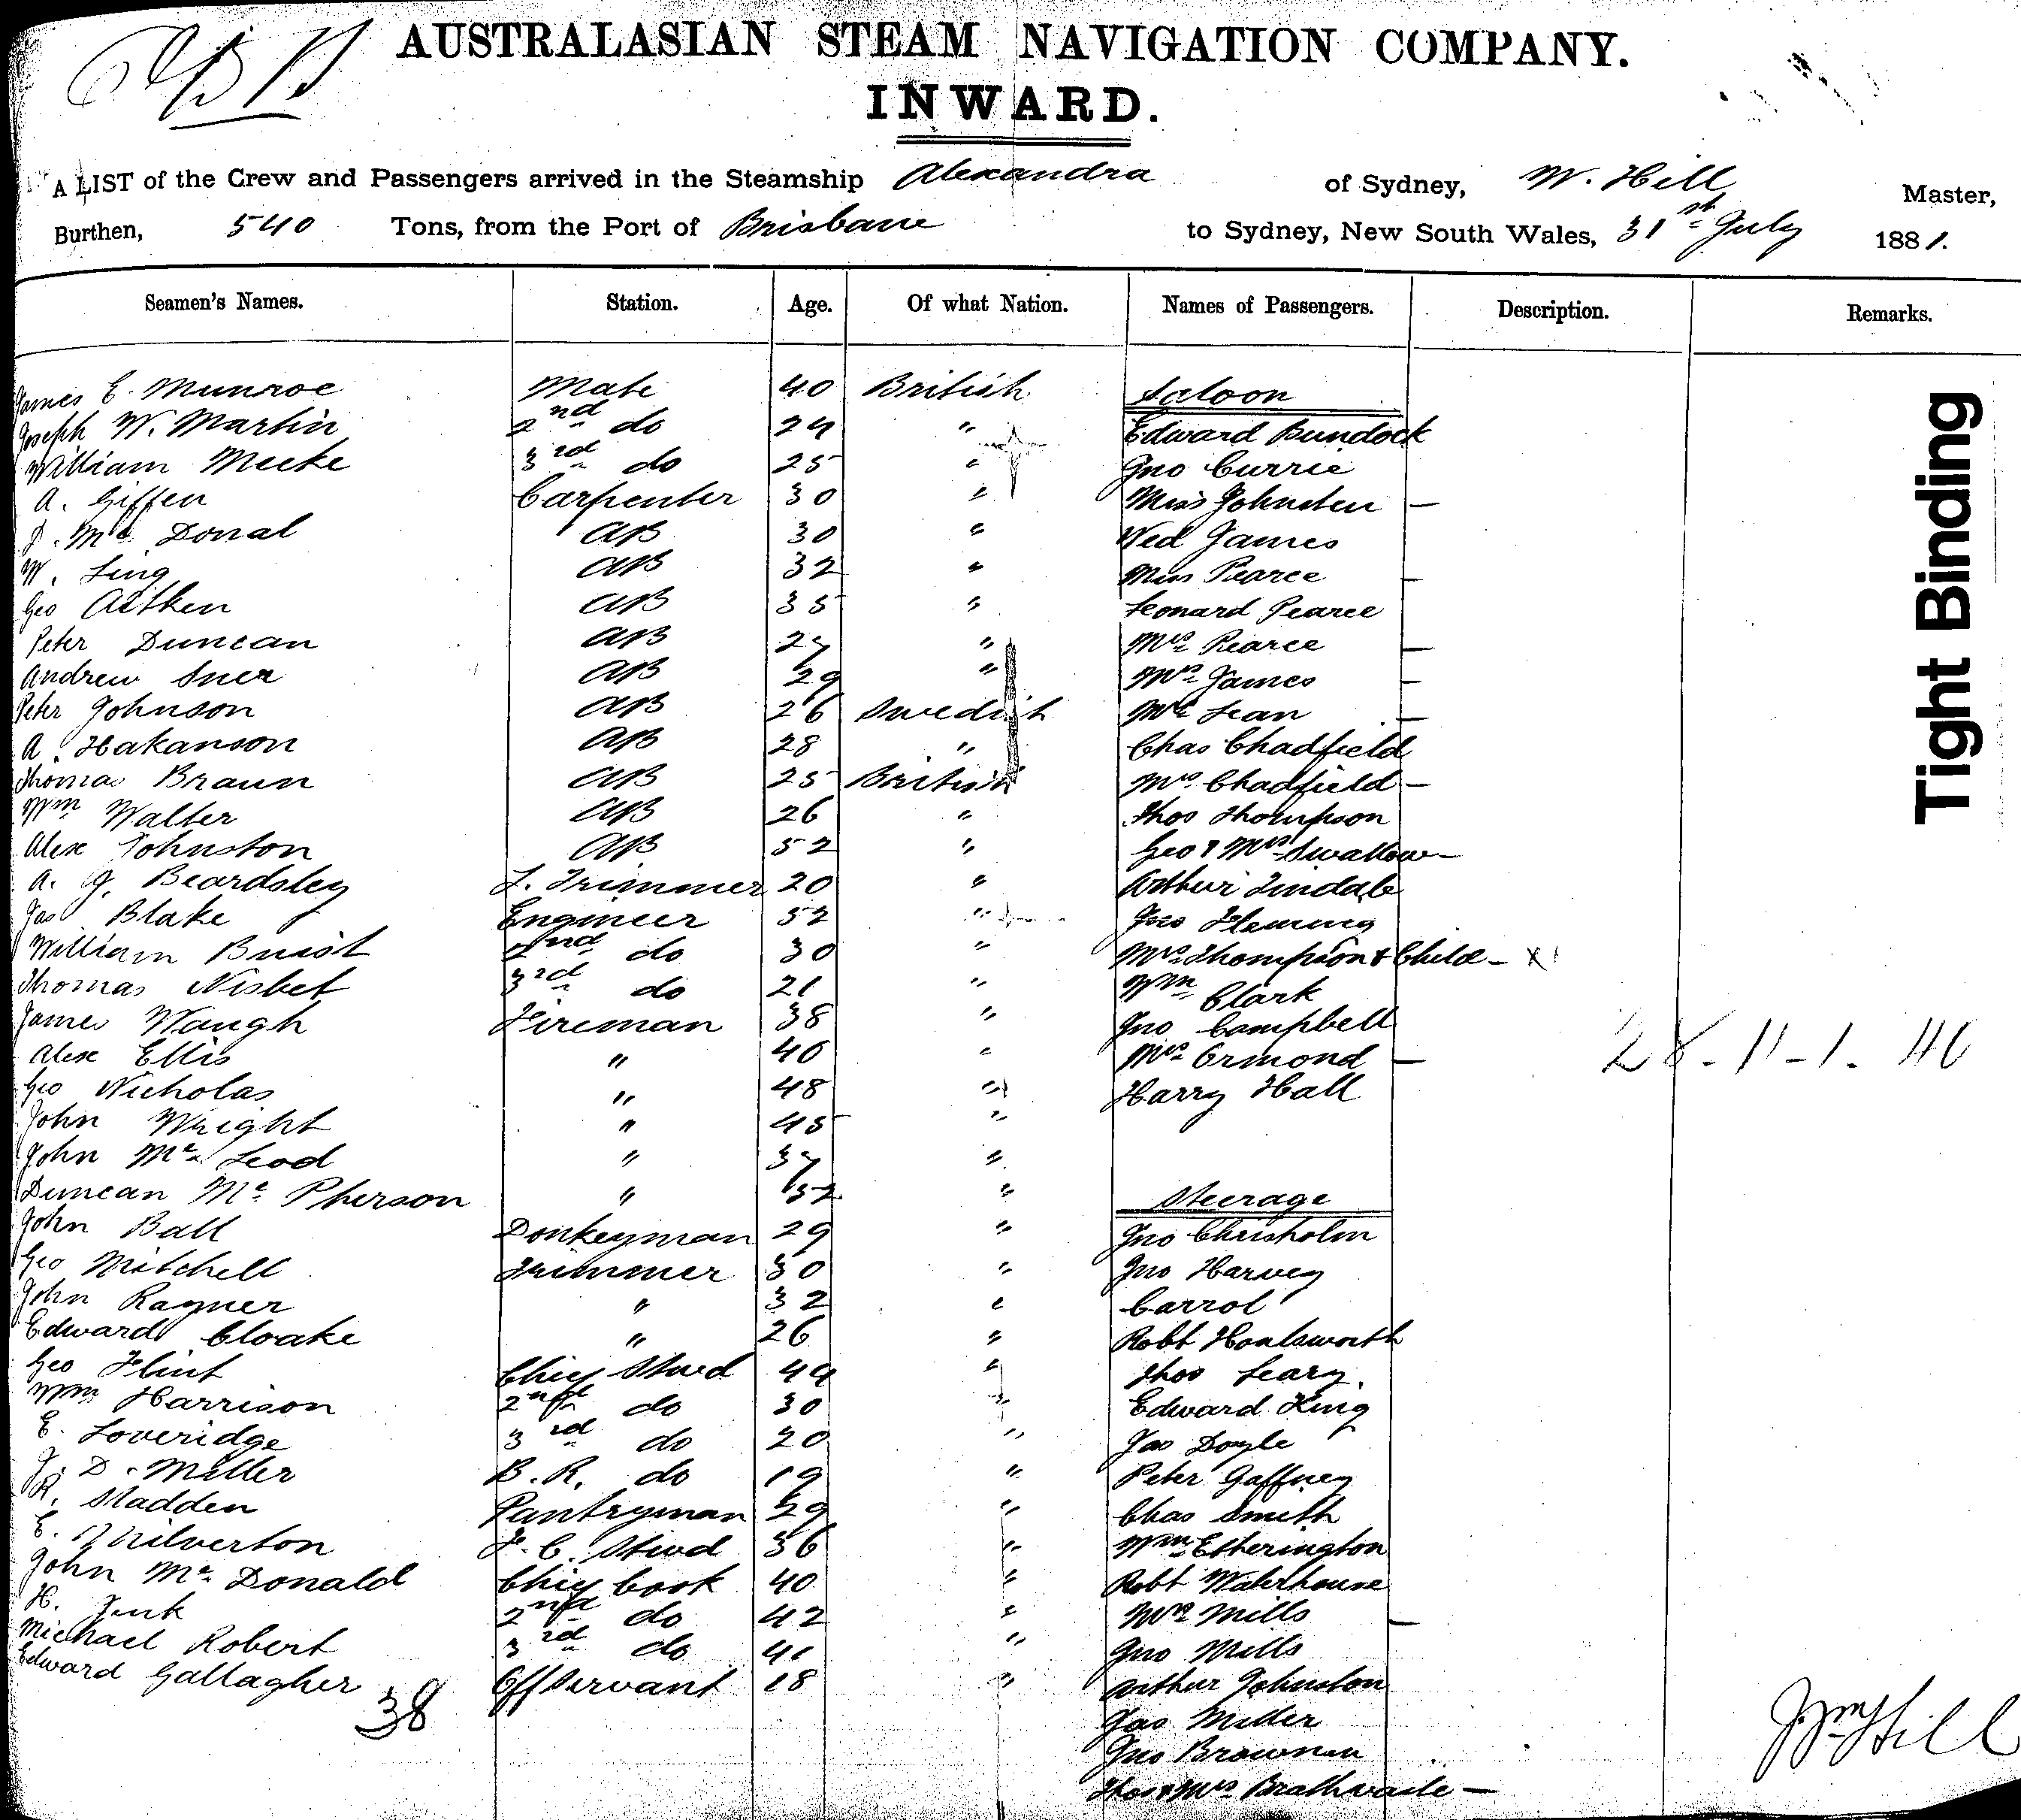 AUSTRALASIAN STEAM NAVIGATION COMPANY.
INWARD.
A LIST of the Crew and Passengers arrived in the Steamship Alexandra of Sydney, W. Hill Master,
Burthen, 540 Tons, from the Port of Brisbane to Sydney, New South Wales, 31st July 1881.
Seamen's Names. Station. Age. Of what Nation. Names of Passengers. Description. Remarks.
James E. Munroe Mate 40 British Saloon
Joseph W. Martin 2nd do 24 " Edward Bundock
William Meeke 3rd do 25 " Jno Currie
A. Giffen Carpenter 30 " Miss Johnston —
J. Mc Donal AB 30 " Ned James
W. Ling AB 32 " Miss Pearce —
Geo Aitken AB 35 " Leonard Pearce
Peter Duncan AB 27 " Mrs Pearce —
Andrew AB 29 " Mrs James —
Peter Johnson AB 26 Swedish Lean —
A. Hakanson AB 28 " Chas Chadfield
Thomas Braun AB 25 British Mrs Chadfield —
Wm Walter AB 26 " Thos Thompson
Alex Johnston AB 52 " Geo & Mrs Swallow —
A. J. Beardsley L. Trimmer 20 " Arthur Tindale
Jas Blake Engineer 52 " Jno Fleming
William Buist 2nd do 30 " Mrs Thompson & Child — x
Thomas Nisbet 3rd do 21 " Wm Clark
James Waugh Fireman 38 " Jno Campbell
Alex Ellis " 40 " Mrs Ormond —
28 - 11 - 1. 40
Geo Nicholas " 48 " Harry Hall
John Wright " 45 "
John Mc Leod " 37 "
Duncan Mc Pherson " 52 " Steerage
John Ball Donkeyman 29 " Jno Chrisholm
Geo Mitchell Trimmer 30 " Jno Harvey
John Rayner " 32 " Carrol
Edward Cloake " 26 " Robt Houlsworth
Geo Flint Chief Stwd 44 " Thos Leary.
Wm Harrison 2nd do 30 " Edward King
E. Loveridge 3rd do 20 " Jas Doyle
J. D. Miller B. R. do 19 " Peter Gaffney
R. Madden Pantryman 29 " Chas Smith
E. Milverton F. C. Stwd 36 " Wm Etherington
John Mc Donald Chief Cook 40 " Robt Waterhouse
H. Funk 2nd do 42 " Mrs Mills —
Michael Robert 3rd do 41 " Jno Mills
Edward Gallagher Off Servant 18 " Arthur Johnston
38 Jas Miller
Jno
Thos & Mrs Brathwaite —
Wm Hill
Tight Binding